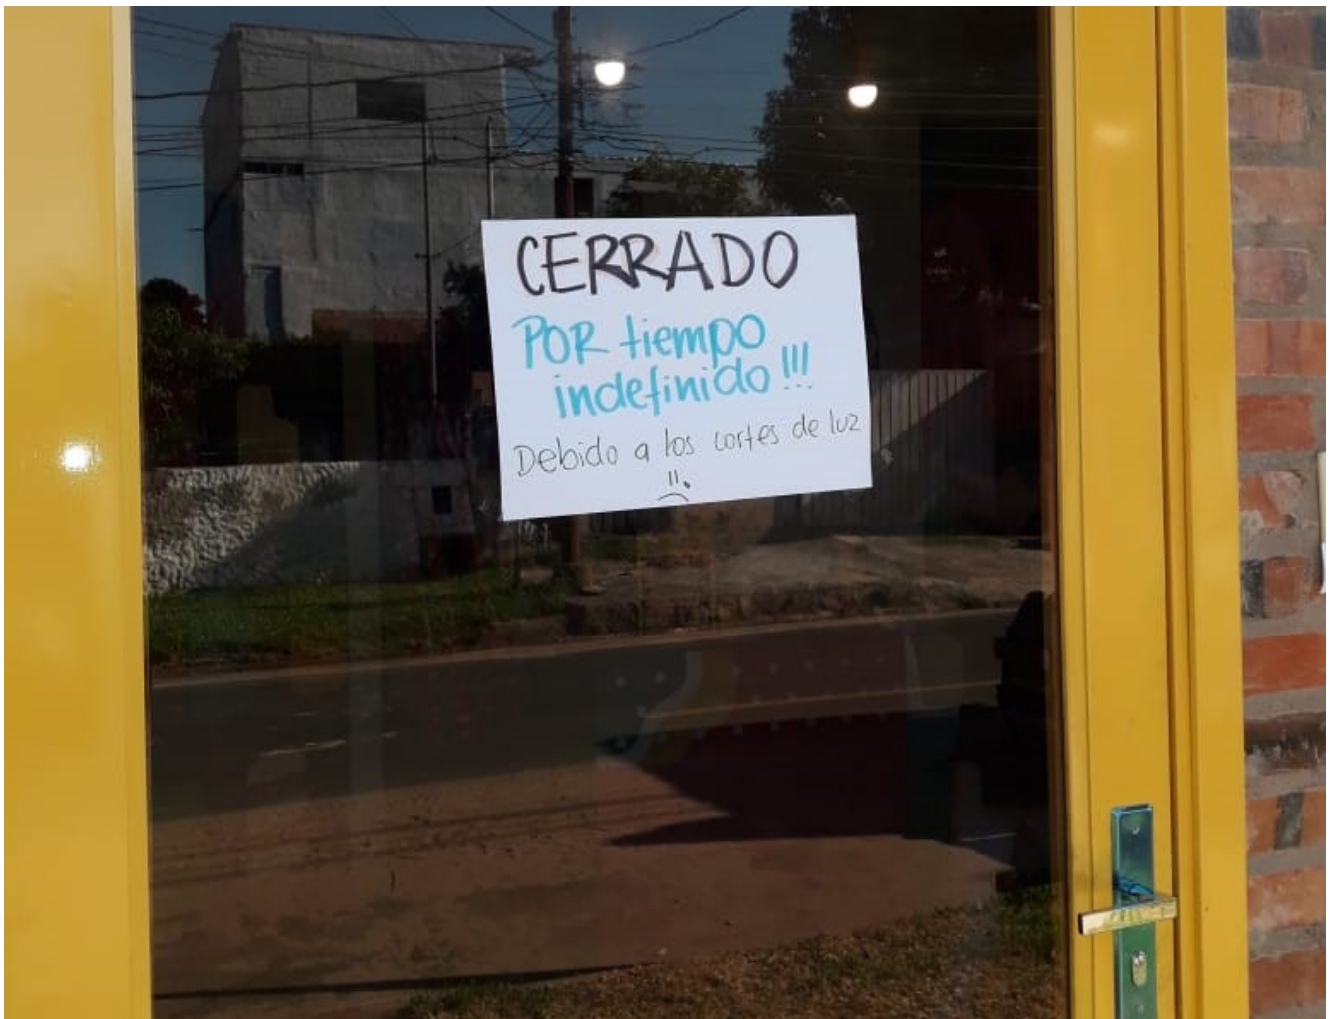 CERRADO
POR tiempo
indefinido!!!
Debido a los cortes de luz